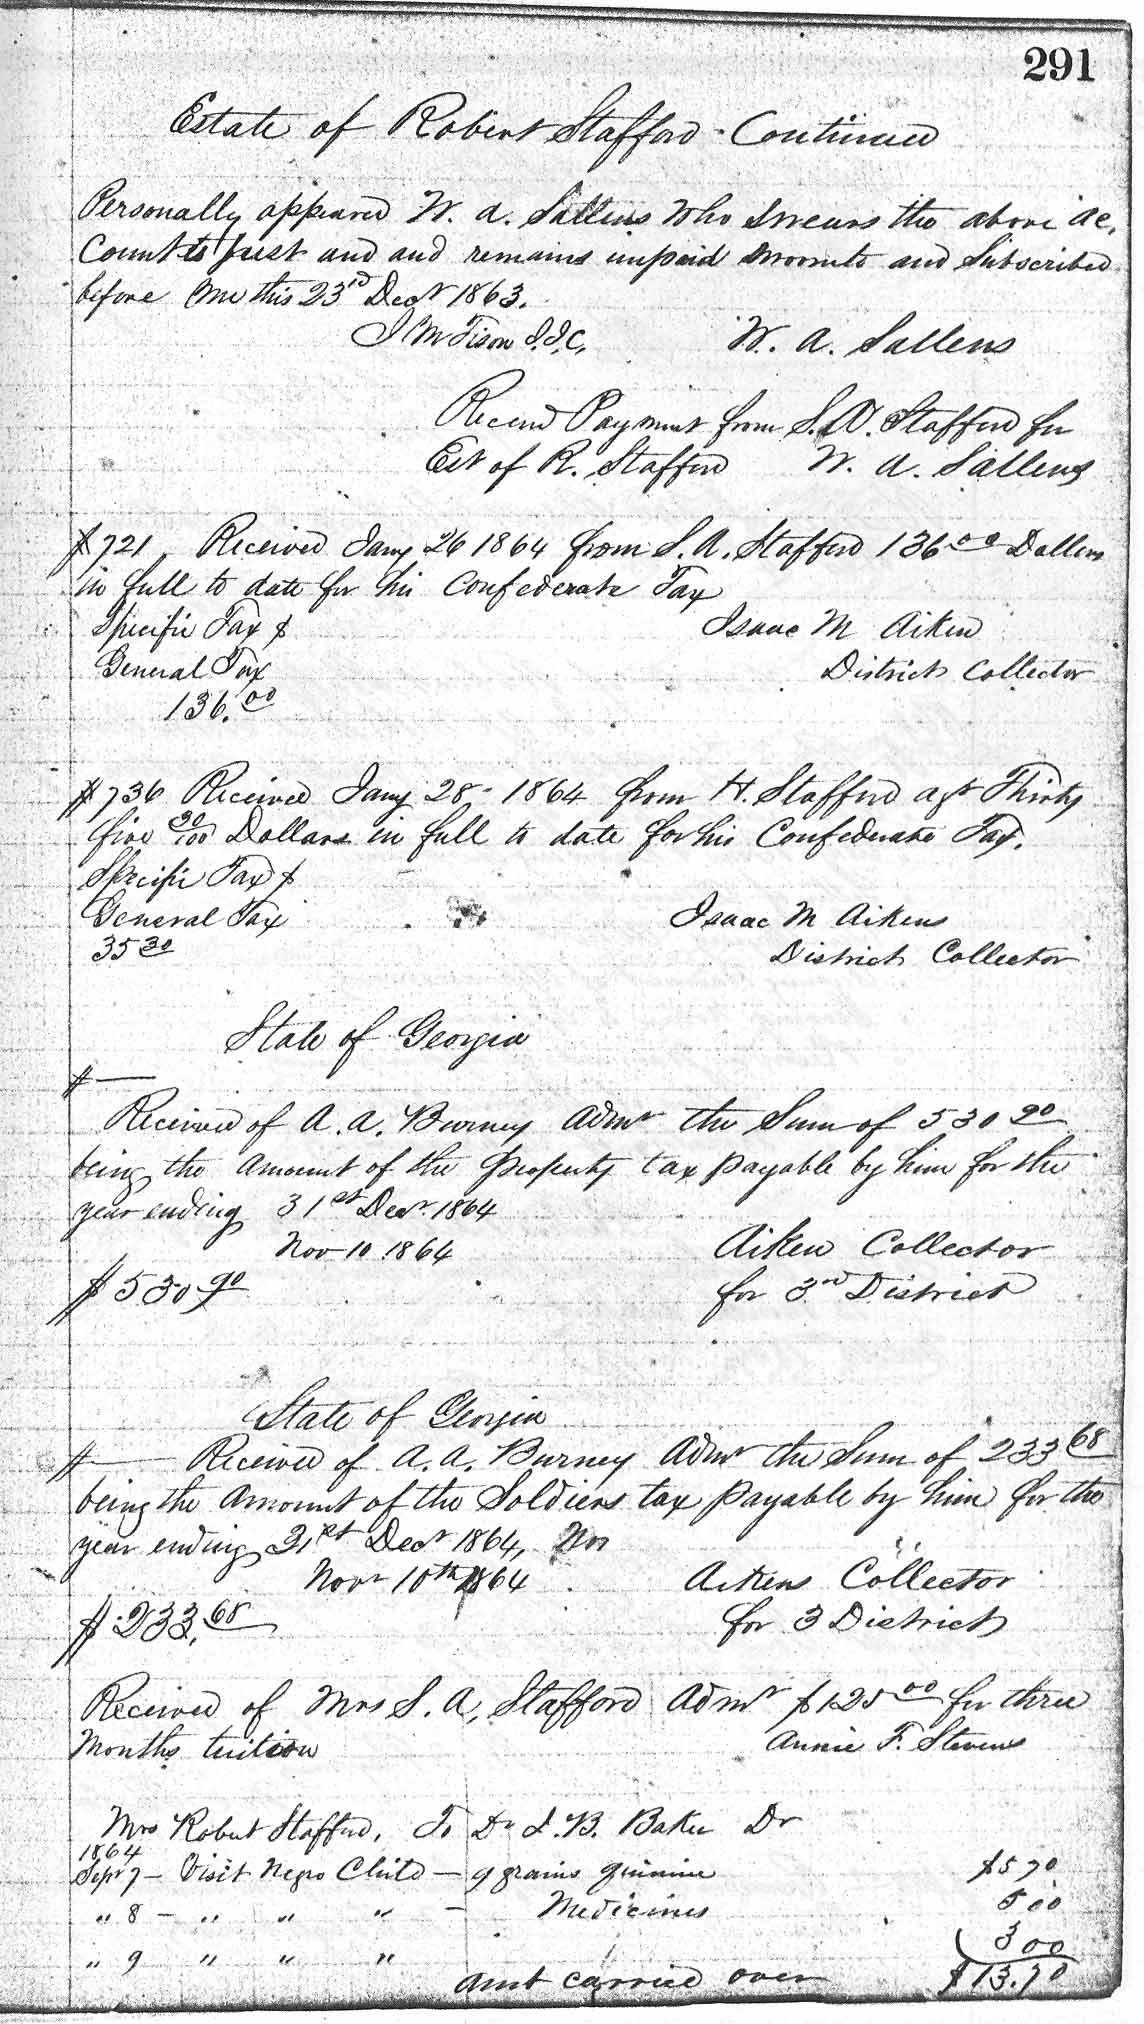 291
Estate of Robert Stafford - Continued
Personally appeared W. A. Sallens Who Swears the above Ac,
Count is just and and remains unpaid and Subscribed
before me this 23rd Decr 1863.
J M Tison J.J.C, W. A. Sallens
Recend Payment from S. A. Stafford for
Est of R. Stafford W. A. Sallens
$721. Received Jany 26 1864 from S. A. Stafford 136 00 Dollars
in full to date for his Confederate Tax
Specific Tax $ Isaac M Aiken
General Tax District Collector
136.00
$736 Received Jany 28 - 1864 from H. Stafford agt Thirty
five 30/100 Dollars in full to date for his Confederate Tax.
Specific Tax $
General Tax Isaac M Aiken
35 30 District Collector
State of Georgia
$ —
Received of A. A. Burney Admr the Sum of 530 90
being the Amount of the Property tax payable by him for the
year ending 31st Decr. 1864
Nov 10 1864 Aiken Collector
$530 90 for 3rd District
State of Georgia
$ — Received of A. A. Burney Admr the Sum of 233 68
being the Amount of the Soldiers tax payable by him for the
year ending 31st Decr 1864, Nov
Novr 10th 1864 Aiken Collector
$233.68 for 3 District
Received of Mrs S. A, Stafford Admr $125 00 for three
Months tuition Annie F. Stevens
Mrs Robert Stafford, To Dr J. B. Baker Dr
1864
Sepr 7 - Visit Negro Child - 9 grains quinine $5 70
" 8 - " " " - Medicines 5 00
" 9 " " " 3 00
Amt carried over $13.70